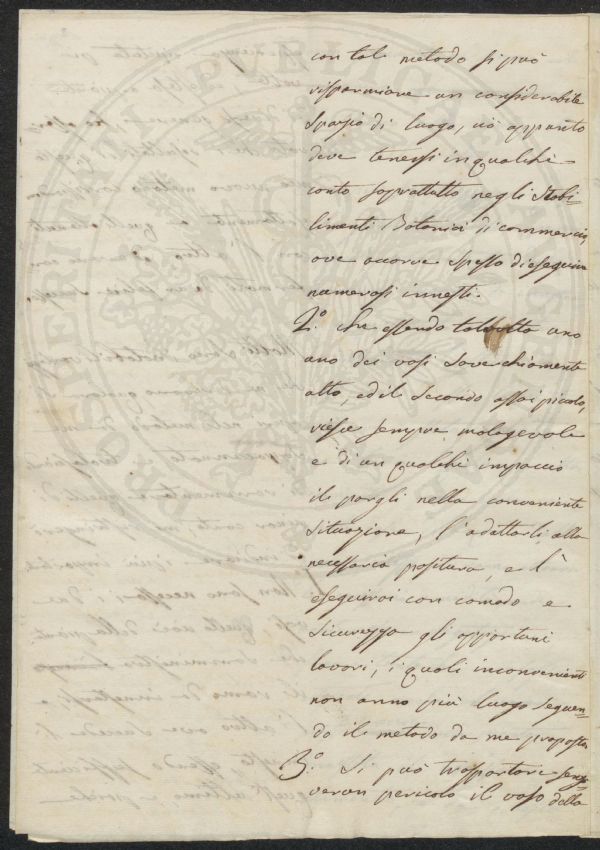 con tal metodo si può
risparmiare un considerabile
spazio di luogo, ciò appunto
deve tenersi in qualche
conto soprattutto negli Stabi-
limenti Botanici di commercio,
ove occorre spesso di eseguire
numerosi innesti.
2.º che essendo talvolta uno
uno dei vasi soverchiamente
alto, ed il secondo assai picolo,
riesce sempre malagevole
e di un qualche impaccio
il porgli nella conveniente
situazione, l'adattarli alla
necessaria positura, e l'
eseguirvi con comodo e
sicurezza gli opportuni
lavori, i quali inconvenienti
non anno più luogo seguen-
do il metodo da me proposto.
3.º Si può trasportare senza
verun pericolo il vaso della